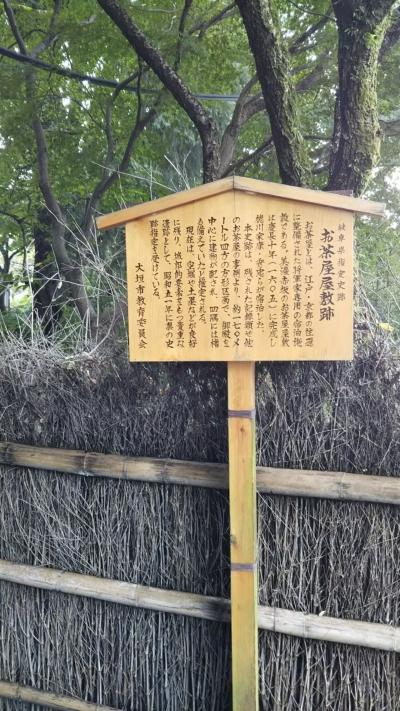 岐阜県指定史跡
お茶屋屋敷跡
お茶屋とは、江戸・京都の往還
に整備された将軍家専用の宿泊施
設である。美濃赤坂のお茶屋屋敷
は慶長十年(一六〇五)に完成し
徳川家康・秀忠らが宿泊した。
本史跡は、残された記録類や他
のお茶屋の事例より、約一七〇メ
ートル四方の方形区画で、御殿を
中心に建物が配され、四隅には櫓
も備えていたと推定される。
現在は、空堀や土塁などが良好
に残り、城郭的要素をもつ貴重な
遺跡として、昭和五一年に県の史
跡指定を受けている。
大垣市教育委員会